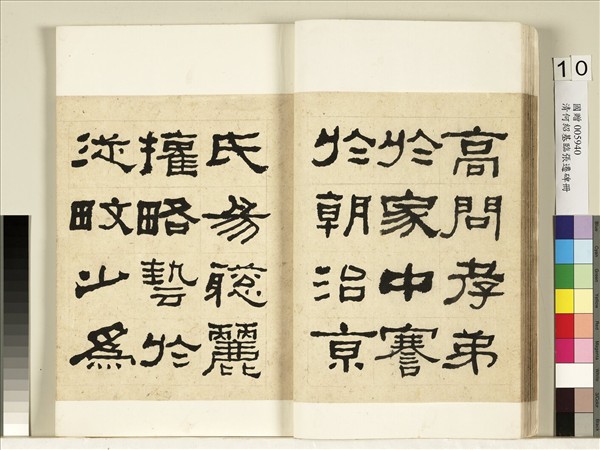 高問孝弟
於家中謇
於朝治京
氏易聰麗
權略藝於
從畋少為
10
國贈 005940
清何紹基臨張遷碑冊